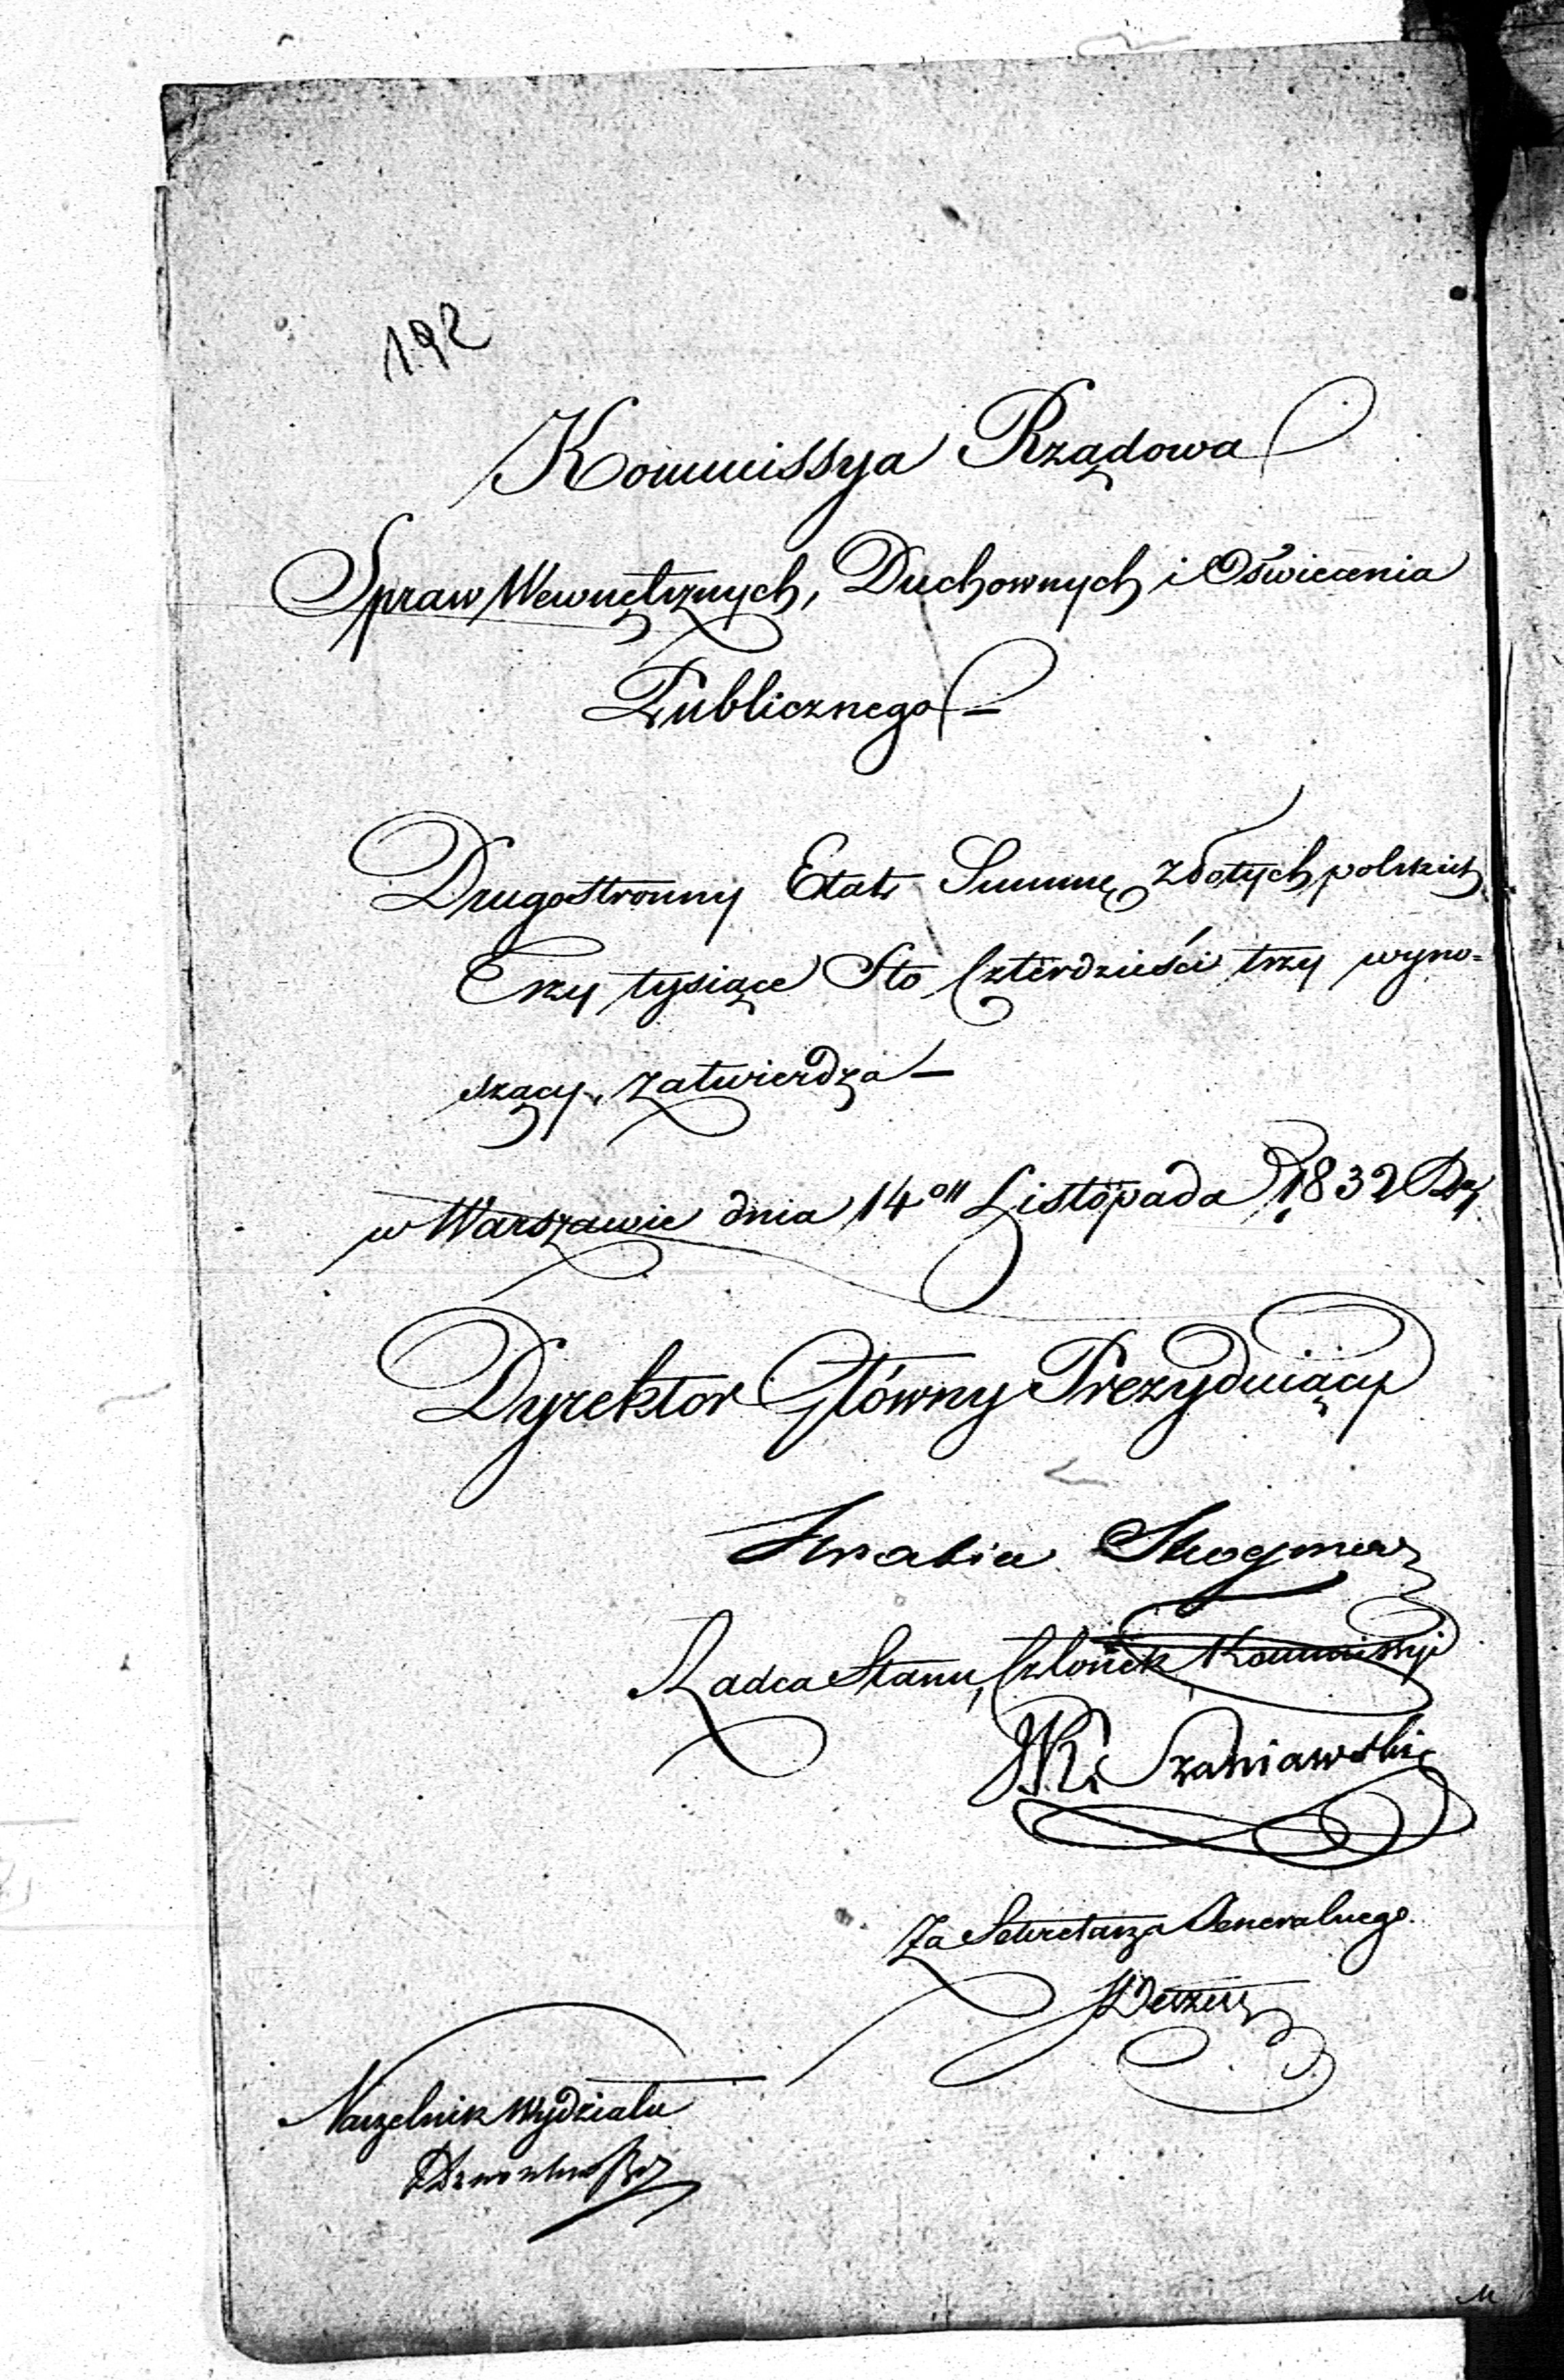 192
Kommissya Rządowa
Spraw Wewnętrznych, Duchownych i Oświecenia
Publicznego –
Drugostronny Etat Summę złotych polskich
Trzy tysiące Sto Czterdzieści trzy wyno=
szący, zatwierdza –
w Warszawie dnia 14 Listopada 1832 R
Dyrektor Główny Prezyduiący
Hrabia
Radca Stanu, Członek Kommissyi
Szaniawski
Za Sekretarza Generalnego
Naczelnik Wydziału